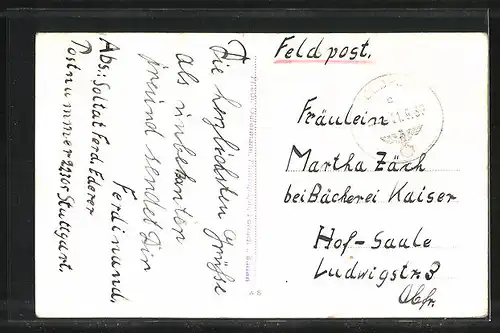 Feldpost.
Die herzlichsten Grüße
als unbekannter
freund sendet Dir
Ferdinand,
Abs.: Soltat Ferd. Ederer
Postnummer 22305 Stuttgart.
Fräulein
Martha Zäch
bei Bäckerei Kaiser
Hof-Saale
Ludwigstr 3
Obfr.